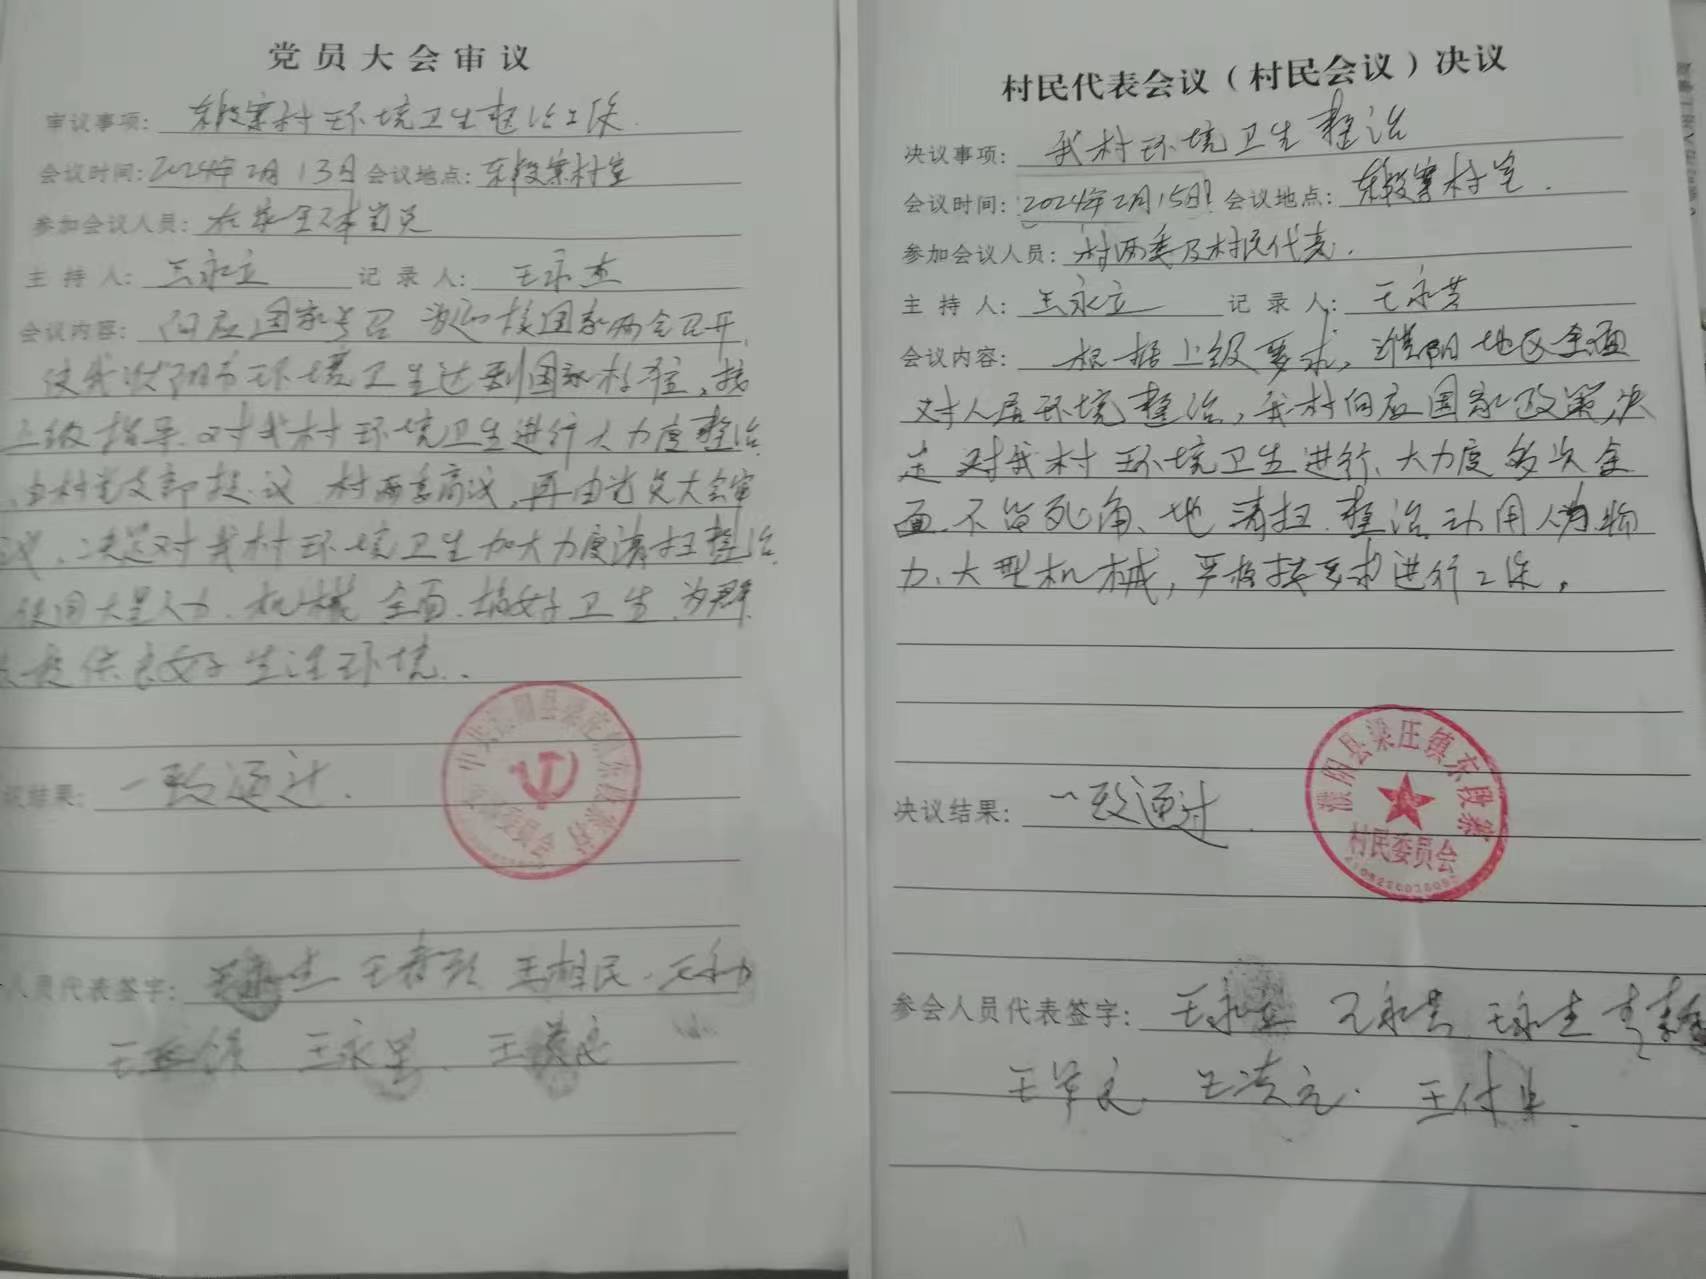 党员大会审议
审议事项: 东段寨村环境卫生整治工作.
会议时间: 2024年2月13日 会议地点: 东段寨村室
参加会议人员: 在家全体党员
主持人: 王永立 记录人: 王永杰
会议内容: 向应国家号召 迎接国家两会召开,
使我濮阳市环境卫生达到国家标准, 按
上级指导, 对我村环境卫生进行大力度整治
, 由村党支部提议 村两委商议, 再由党员大会审
议, 决定对我村环境卫生加大力度清扫整治,
使用大量人力, 机械 全面, 搞好卫生, 为群
众提供良好生活环境..
议结果: 一致通过.
人员代表签字: 王相民
王永
村民代表会议（村民会议）决议
决议事项: 我村环境卫生整治
会议时间: 2024年2月15日 会议地点: 东段寨村室.
参加会议人员: 村两委及村民代表.
主持人: 王永立 记录人: 王永芳
会议内容: 根据上级要求, 濮阳地区全面
对人居环境整治, 我村向应国家政策, 决
定对我村环境卫生进行、大力度多次全
面、不留死角、地清扫、整治, 动用人力物
力、大型机械, 严格按要求进行工作,
决议结果: 一致通过.
濮阳县梁庄镇东段寨
村民委员会
参会人员代表签字: 王永立 王永芳 王永杰